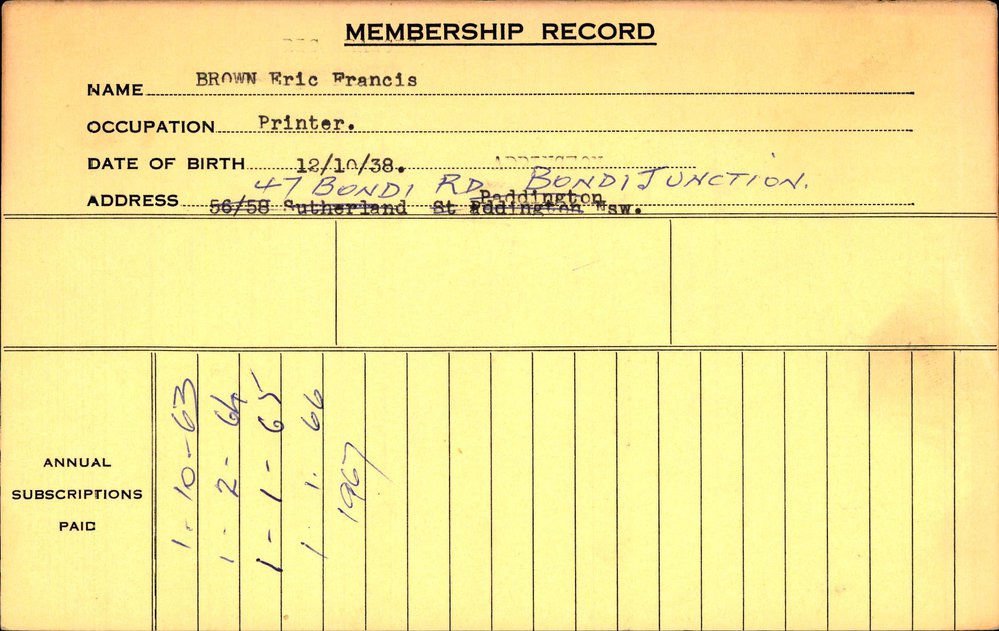 MEMBERSHIP RECORD
NAME BROWN Eric Francis
OCCUPATION Printer.
DATE OF BIRTH 12/10/38.
47 BONDI RD BONDI JUNCTION.
Paddington
ADDRESS 56/58 Sutherland St Addington Nsw.
ANNUAL
SUBSCRIPTIONS
PAID
1-10-63
1-2-64
1-1-65
1.1.66
1967